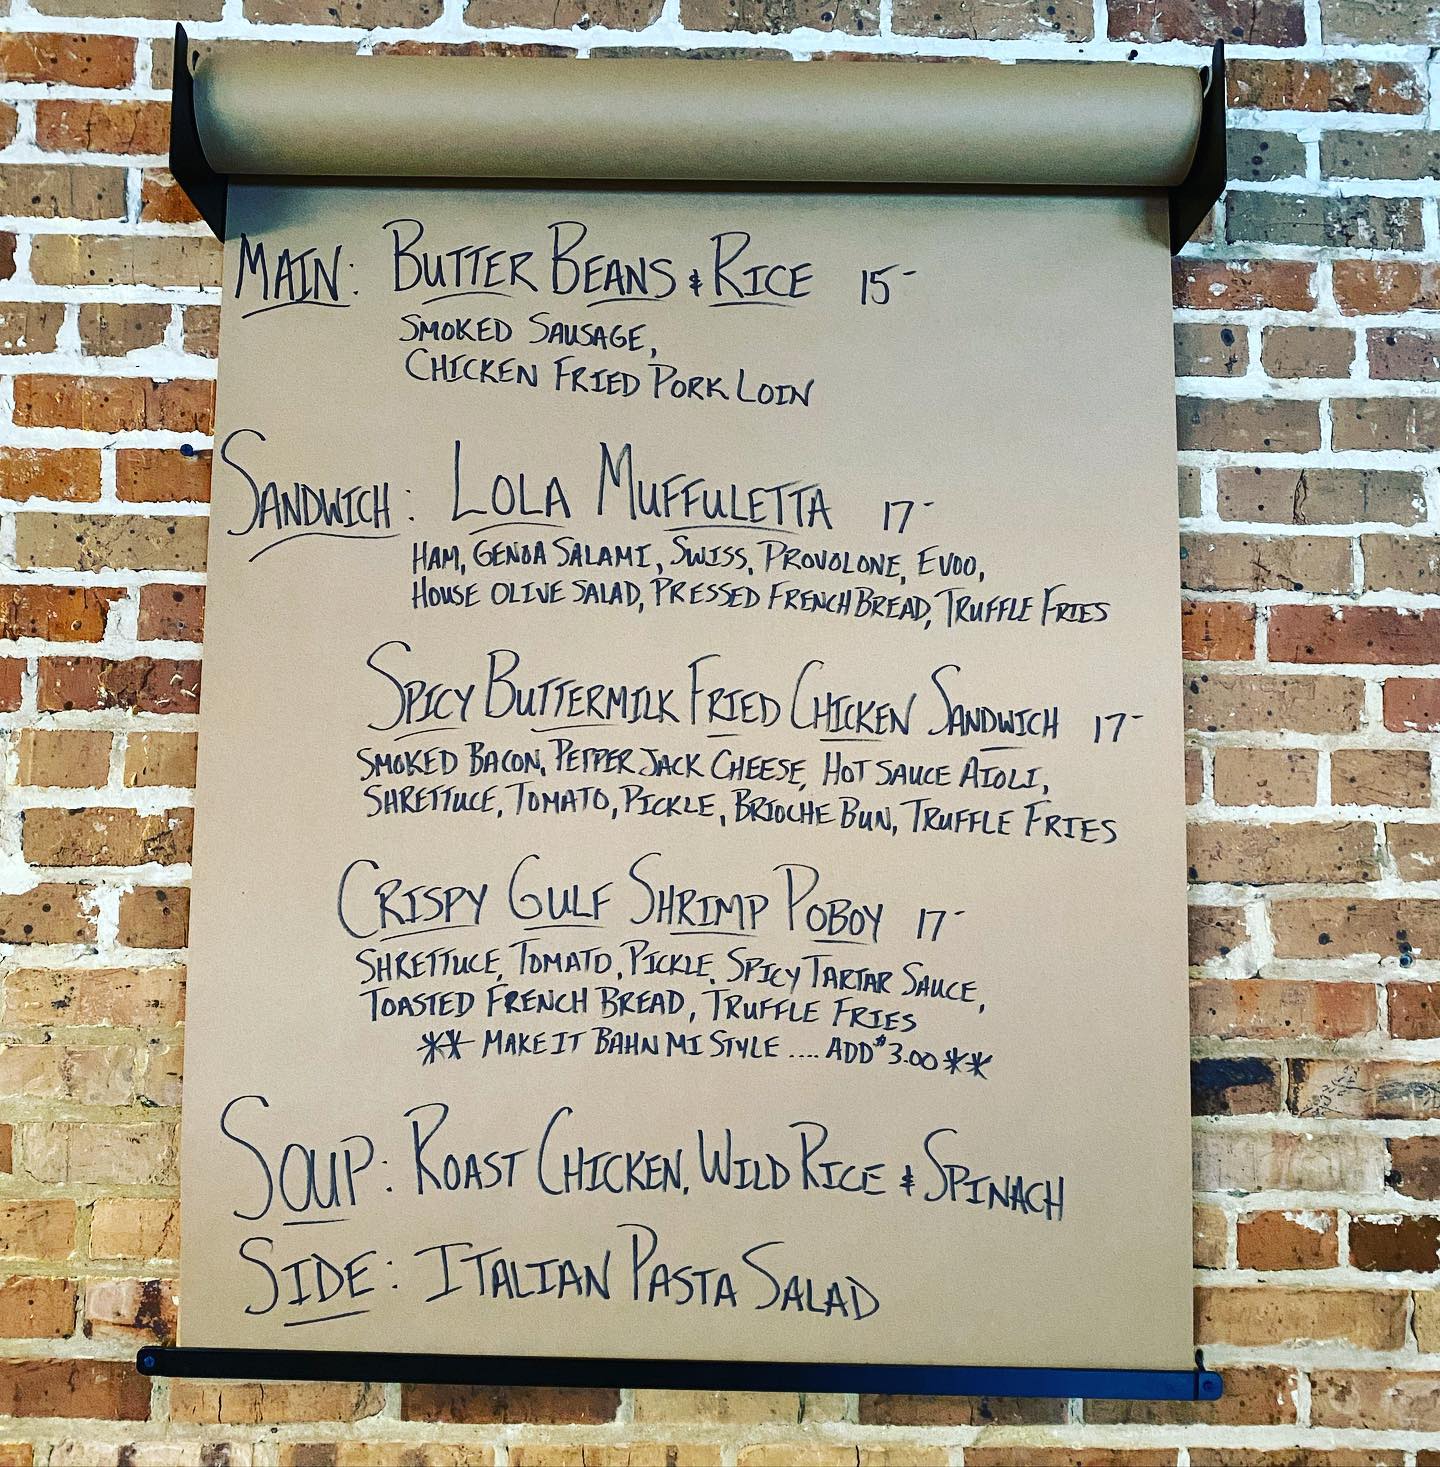 MAIN: BUTTER BEANS & RICE 15-
SMOKED SAUSAGE,
CHICKEN FRIED PORK LOIN
SANDWICH: LOLA MUFFULETTA 17-
HAM, GENOA SALAMI, SWISS, PROVOLONE, EVOO,
HOUSE OLIVE SALAD, PRESSED FRENCH BREAD, TRUFFLE FRIES
SPICY BUTTERMILK FRIED CHICKEN SANDWICH 17-
SMOKED BACON, PEPPER JACK CHEESE, HOT SAUCE AIOLI,
SHRETTUCE, TOMATO, PICKLE, BRIOCHE BUN, TRUFFLE FRIES
CRISPY GULF SHRIMP POBOY 17-
SHRETTUCE, TOMATO, PICKLE, SPICY TARTAR SAUCE,
TOASTED FRENCH BREAD, TRUFFLE FRIES
** MAKE IT BAHN MI STYLE .... ADD $3.00 **
SOUP: ROAST CHICKEN, WILD RICE & SPINACH
SIDE: ITALIAN PASTA SALAD